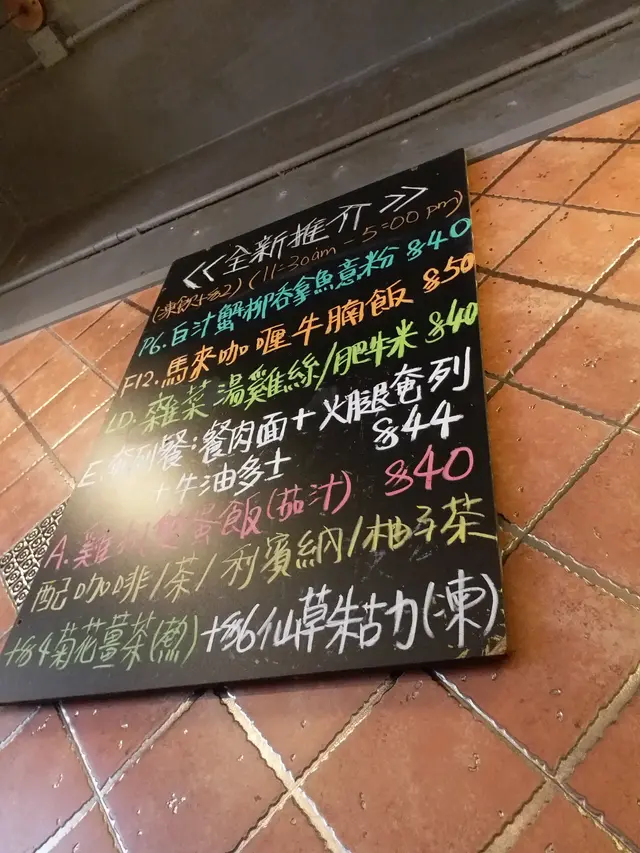 <<全新推介>>
(凍飲+$2) (11:30am - 5:00pm)
P6. 白汁蟹柳吞拿魚意粉 $40
F12. 馬來咖喱牛腩飯 $50
LD. 雜菜湯雞絲/肥牛米 $40
E. 奄列餐：餐肉面+火腿奄列
+牛油多士 $44
A. 雞 蛋飯(茄汁) $40
配咖啡/茶/利賓納/柚子茶
+$4菊花薑茶(熱) +$6仙草朱古力(凍)